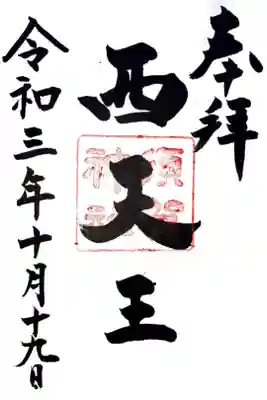 奉拝
西天王
令和三年十月十九日